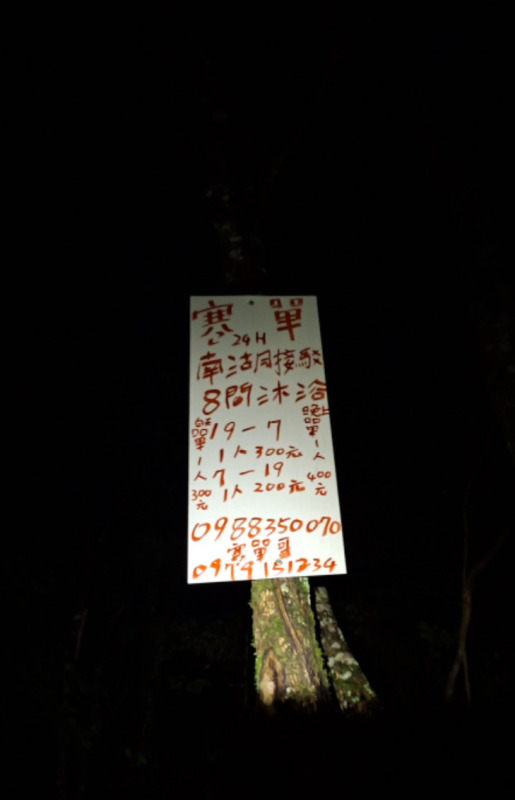 寒單
24H
南湖接駁
8間沐浴
19-7
1人300元
7-19
1人200元
單1人
300
元
晚上
單1人
400
元
0988350070
寒單哥
0979151234